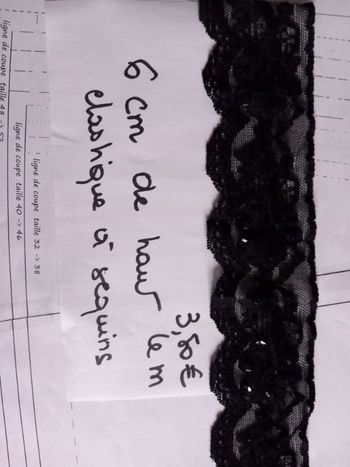 3,50€
6 cm de haut le m
élastique à sequins
ligne de coupe taille 32 -> 38
ligne de coupe taille 40 -> 46
ligne de coupe taille 48 -> 52